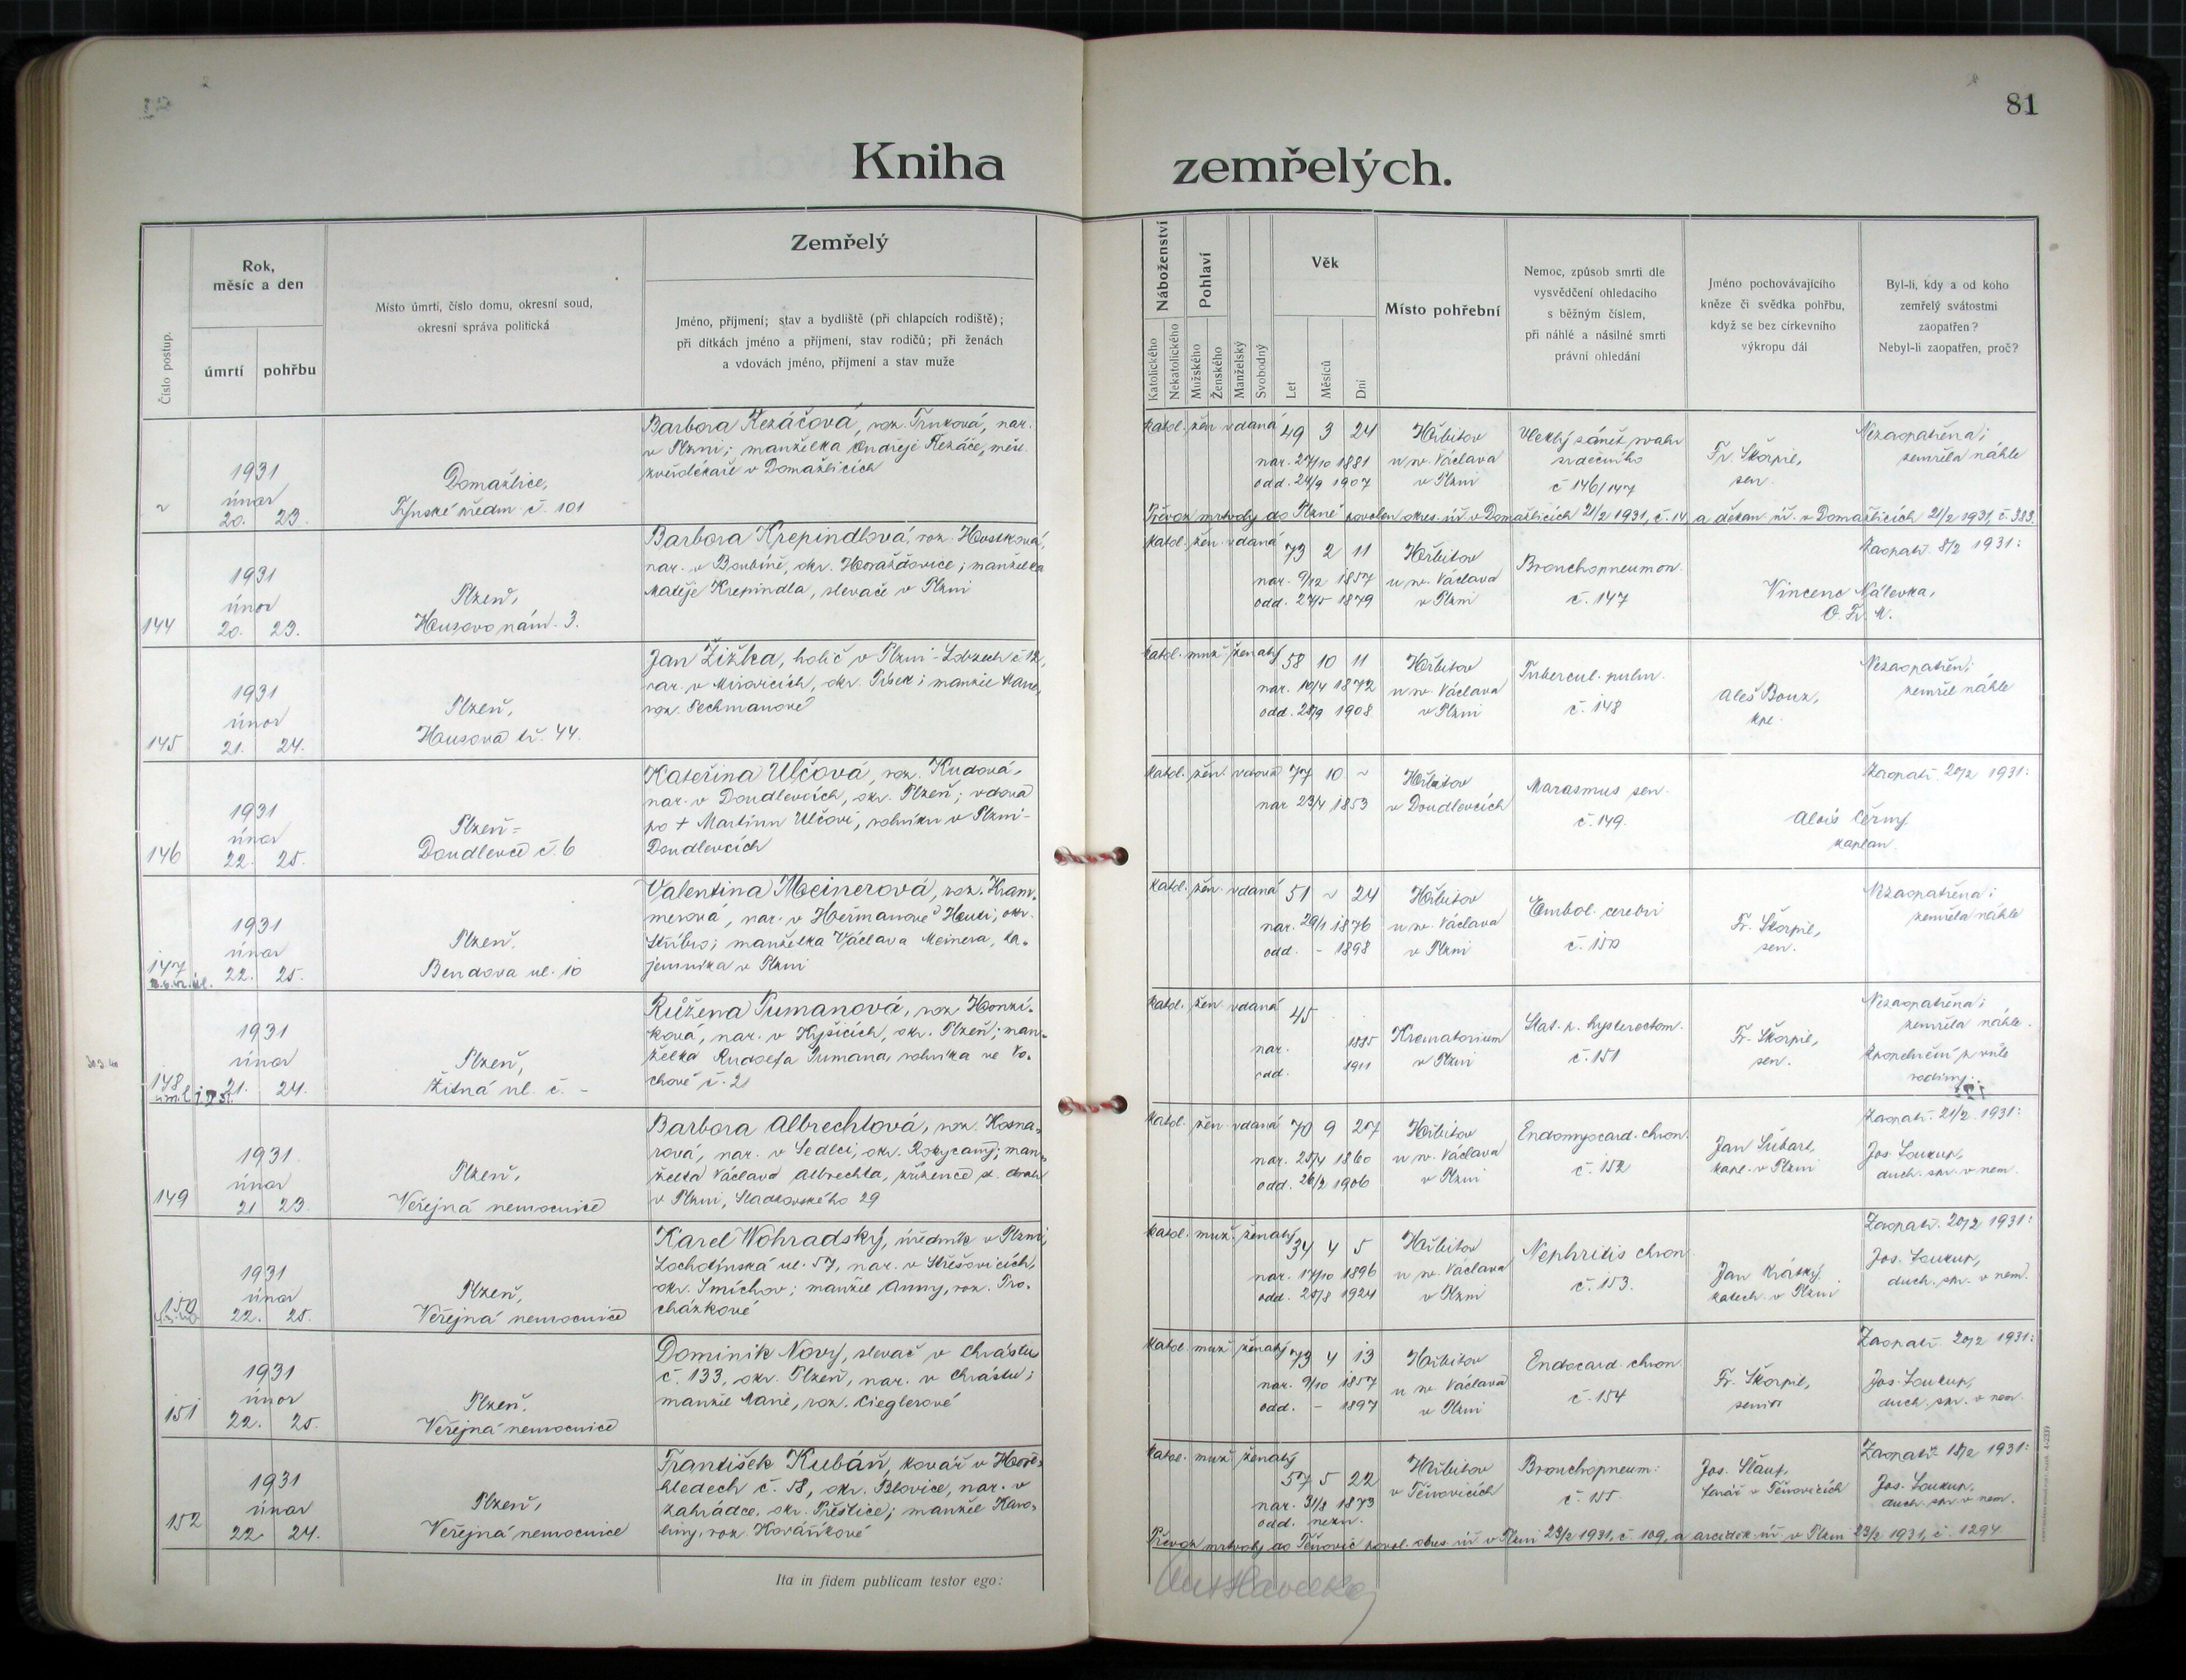 81
Kniha zemřelých.
Číslo postup.
Rok, měsíc a den
úmrtí
pohřbu
Místo úmrtí, číslo domu, okresní soud,
okresní správa politická
Zemřelý
Jméno, příjmení; stav a bydliště (při chlapcích rodiště);
při dítkách jméno a příjmení, stav rodičů; při ženách
a vdovách jméno, příjmení a stav muže
Náboženství
Katolického
Nekatolického
Pohlaví
Mužského
Ženského
Manželský
Svobodný
Věk
Let
Měsíců
Dní
Místo pohřební
Nemoc, způsob smrti dle
vysvědčení ohledacího
s běžným číslem,
při náhlé a násilné smrti
právní ohledání
Jméno pochovávajícího
kněze či svědka pohřbu,
když se bez církevního
výkropu dál
Byl-li, kdy a od koho
zemřelý svátostmi
zaopatřen?
Nebyl-li zaopatřen, proč?
1931
únor
20. 23.
Domažlice,
Týnské předm. č. 101
Barbora Řezáčová, roz. Trnková, nar.
v Plzni; manželka Ondřeje Řezáče, měst.
zvěrolékaře v Domažlicích
katol. žen. vdaná 49 3 24
nar. 27/10 1881
odd. 24/9 1907
Hřbitov
u sv. Václava
v Plzni
srdečního
č. 146/147
Fr. Škorpil,
sen.
Nezaopatřena;
zemřela náhle
Převoz mrtvoly do Plzně povolen okres. úř. v Domažlicích 21/2 1931, č. 14 a děkan. úř. v Domažlicích 21/2 1931, č. 383.
144
1931
únor
20. 23.
Plzeň,
Husovo nám. 3.
Barbora Krepindlová, roz.
nar. v okr. Horažďovice; manželka
Matěje Krepindla, slevače v Plzni
katol. žen. vdaná 73 2 11
nar. 9/12 1857
odd. 27/5 1879
Hřbitov
u sv. Václava
v Plzni
Bronchopneumon.
č. 147
Vincenc Nálevka,
O. Fr. M.
Zaopatř. 8/2 1931:
145
1931
únor
21. 24.
Plzeň,
Husova tř. 44.
Jan Žižka, holič v Plzni-Lobzech č. 12,
nar. v Mirovicích, okr. Písek; manžel Marie,
roz. Pechmanové
katol. muž. ženatý 58 10 11
nar. 10/4 1872
odd. 28/9 1908
Hřbitov
u sv. Václava
v Plzni
Tubercul. pulm.
č. 148
Aleš Bouz,
kpl.
Nezaopatřen;
zemřel náhle
146
1931
únor
22. 25.
Plzeň-
Doudlevce č. 6
Kateřina Ulčová, roz. Kudová,
nar. v Doudlevcích, okr. Plzeň; vdova
po + Martinu Ulčovi, rolníku v Plzni-
Doudlevcích
katol. žen. vdova 77 10 ~
nar. 23/4 1853
Hřbitov
v Doudlevcích
Marasmus sen.
č. 149.
Alois Černý
kaplan.
Zaopatř. 20/2 1931:
147
1931
únor
22. 25.
Plzeň,
Bendova ul. 10
Valentina Meinerová, roz. Kram-
merová, nar. v Heřmanově Huti, okr.
Stříbro; manželka Václava Meinera, ta-
jemníka v Plzni
katol. žen. vdaná 51 ~ 24
nar. 29/1 1876
odd. - 1898
Hřbitov
u sv. Václava
v Plzni
Embol. cerebri
č. 150
Fr. Škorpil,
sen.
Nezaopatřena;
zemřela náhle
148
1931
únor
21. 24.
Plzeň,
Žitná ul. č. -
Růžena Tumanová, roz. Honzí-
ková, nar. v Kyšicích, okr. Plzeň; man-
želka Rudolfa Tumana, rolníka ve Vo-
chově č. 21
katol. žen. vdaná 45
nar. 1885
odd. 1911
Krematorium
v Plzni
Stat. p. hysterectom.
č. 151
Fr. Škorpil,
sen.
Nezaopatřena;
zemřela náhle.
Zpopelnění z vůle
rodiny.
149
1931
únor
21. 23.
Plzeň,
Veřejná nemocnice
Barbora Albrechtová, roz. Kosna-
rová, nar. v Sedlci, okr. Rokycany; man-
želka Václava Albrechta, zřízence st. drah
v Plzni, Sladkovského 29
katol. žen. vdaná 70 9 27
nar. 25/4 1860
odd. 26/2 1906
Hřbitov
u sv. Václava
v Plzni
Endomyocard. chron.
č. 152
Jan Šubart,
kapl. v Plzni
Zaopatř. 21/2 1931:
Jos. Soukup,
duch. spr. v nem.
150
1931
únor
22. 25.
Plzeň,
Veřejná nemocnice
Karel Wohradský, úředník v Plzni,
Lochotínská ul. 57, nar. v Střešovicích,
okr. Smíchov; manžel Anny, roz. Pro-
cházkové
katol. muž. ženatý 34 4 5
nar. 17/10 1896
odd. 25/8 1924
Hřbitov
u sv. Václava
v Plzni
Nephritis chron.
č. 153.
Jan Krátký
katech. v Plzni
Zaopatř. 20/2 1931:
Jos. Soukup,
duch. spr. v nem.
151
1931
únor
22. 25.
Plzeň,
Veřejná nemocnice
Dominik Nový, slevač v Chrástu
č. 133, okr. Plzeň, nar. v Chrástu;
manžel Marie, roz. Cieglerové
katol. muž. ženatý 73 4 13
nar. 9/10 1857
odd. - 1897
Hřbitov
u sv. Václava
v Plzni
Endocard. chron.
č. 154
Fr. Škorpil,
senior
Zaopatř. 20/2 1931:
Jos. Soukup,
duch. spr. v nem.
152
1931
únor
22. 24.
Plzeň,
Veřejná nemocnice
František Kubáň, kovář v Hoře-
hledech č. 58, okr. Blovice, nar. v
Zahrádce, okr. Přeštice; manžel Karo-
liny, roz. Kovaříkové
katol. muž. ženatý
57 5 22
nar. 31/8 1873
odd. nezn.
Hřbitov
v Těnovicích
Bronchopneum.
č. 155.
Jos. Šlauf,
farář v Těnovicích
Zaopatř. 18/2 1931:
Jos. Soukup,
duch. spr. v nem.
Převoz mrtvoly do Těnovic povol. okres. úř. v Plzni 23/2 1931, č. 109, a arciděk. úř. v Plzni 23/2 1931, č. 1294.
Ita in fidem publicam testor ego: